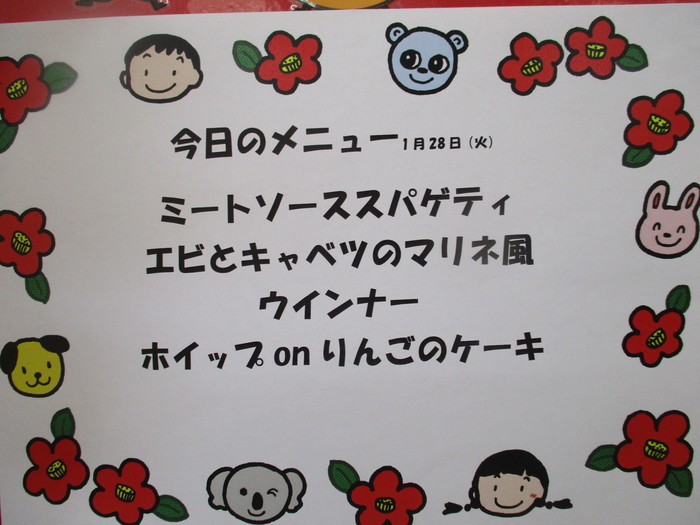 今日のメニュー1月28日(火)
ミートソーススパゲティ
エビとキャベツのマリネ風
ウインナー
ホイップonりんごのケーキ